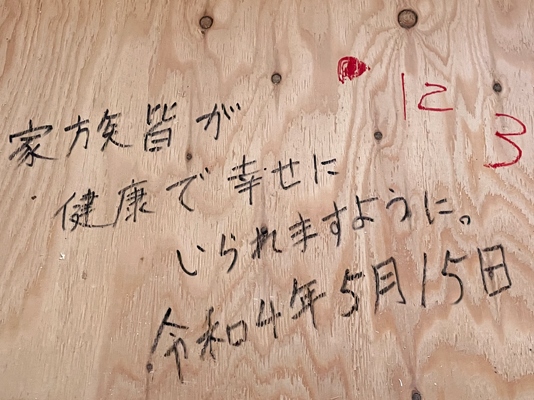 12
3
家族皆が
健康で幸せに
いられますように。
令和4年5月15日